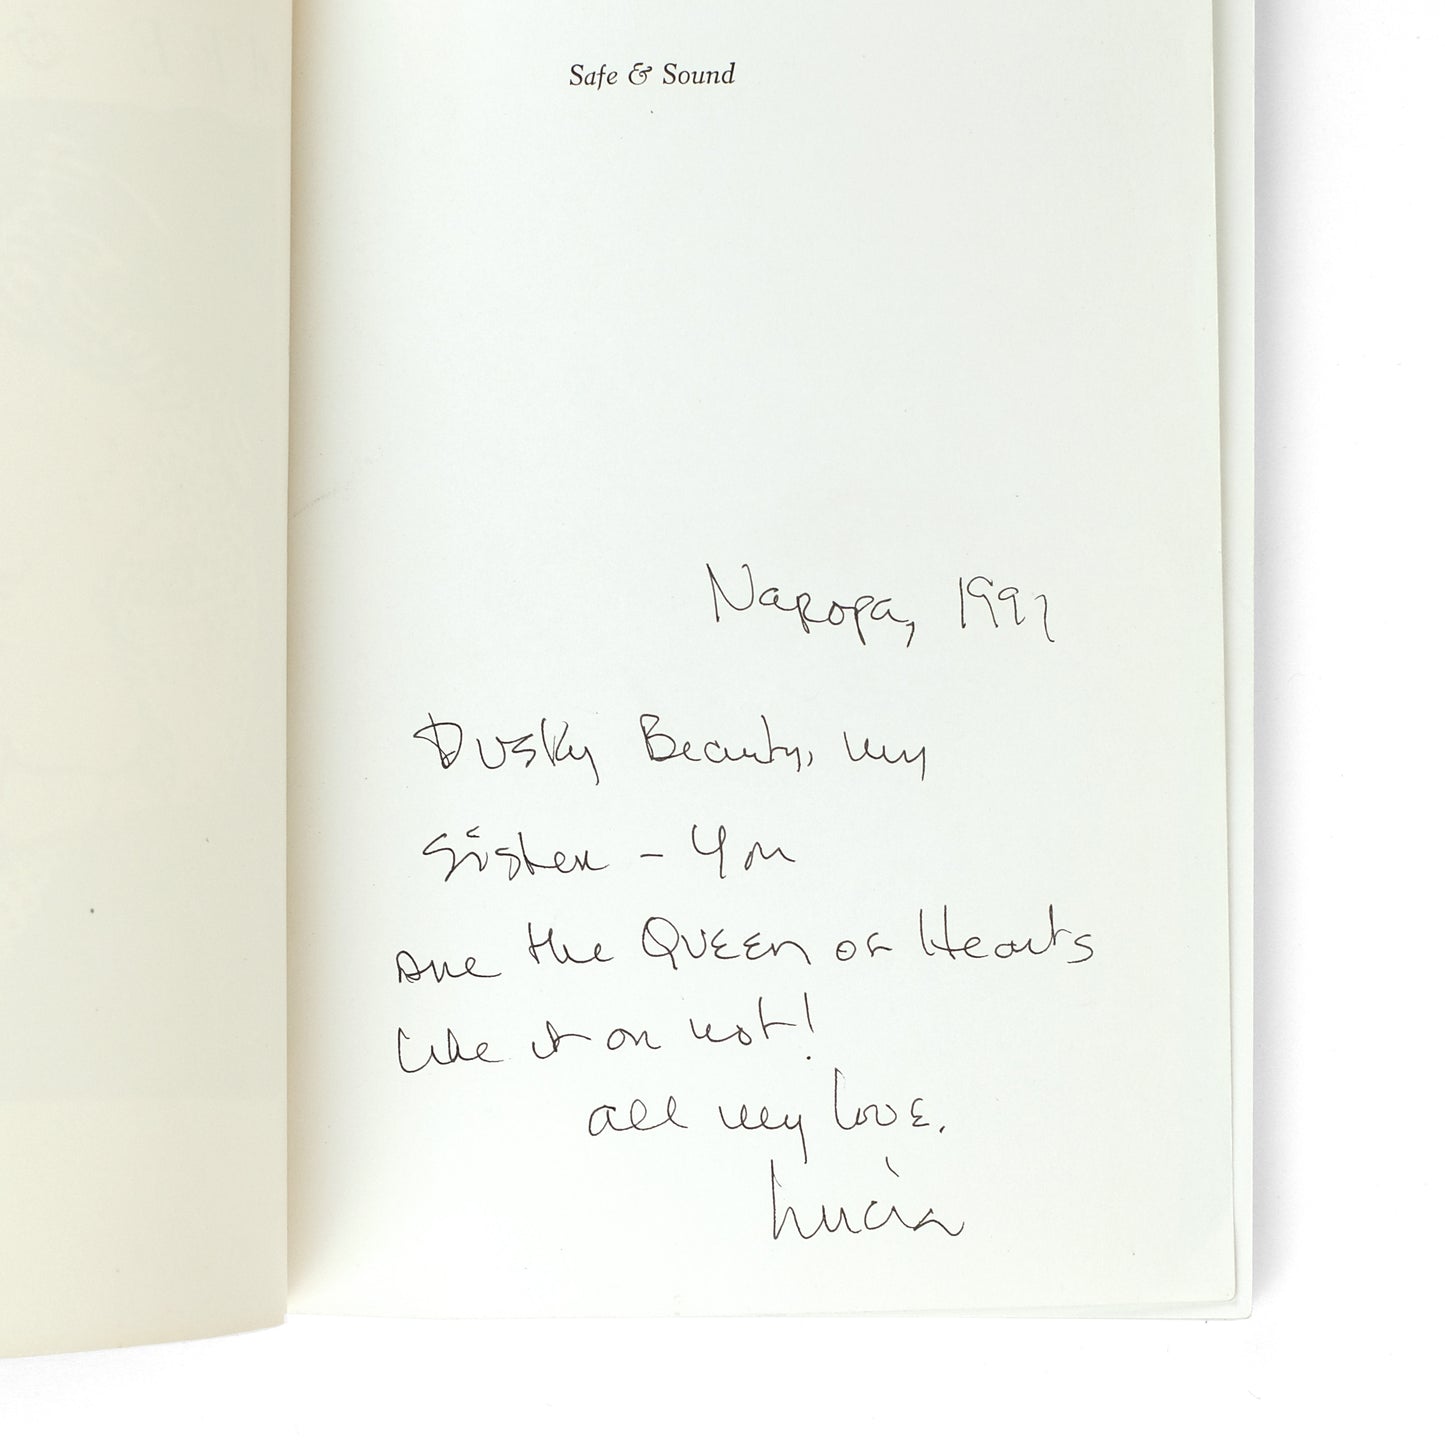 Safe & Sound
Naropa, 1991
Dusky Beauty, my
Sister – You
are the Queen of Hearts
like it or not!
all my love,
Lucia